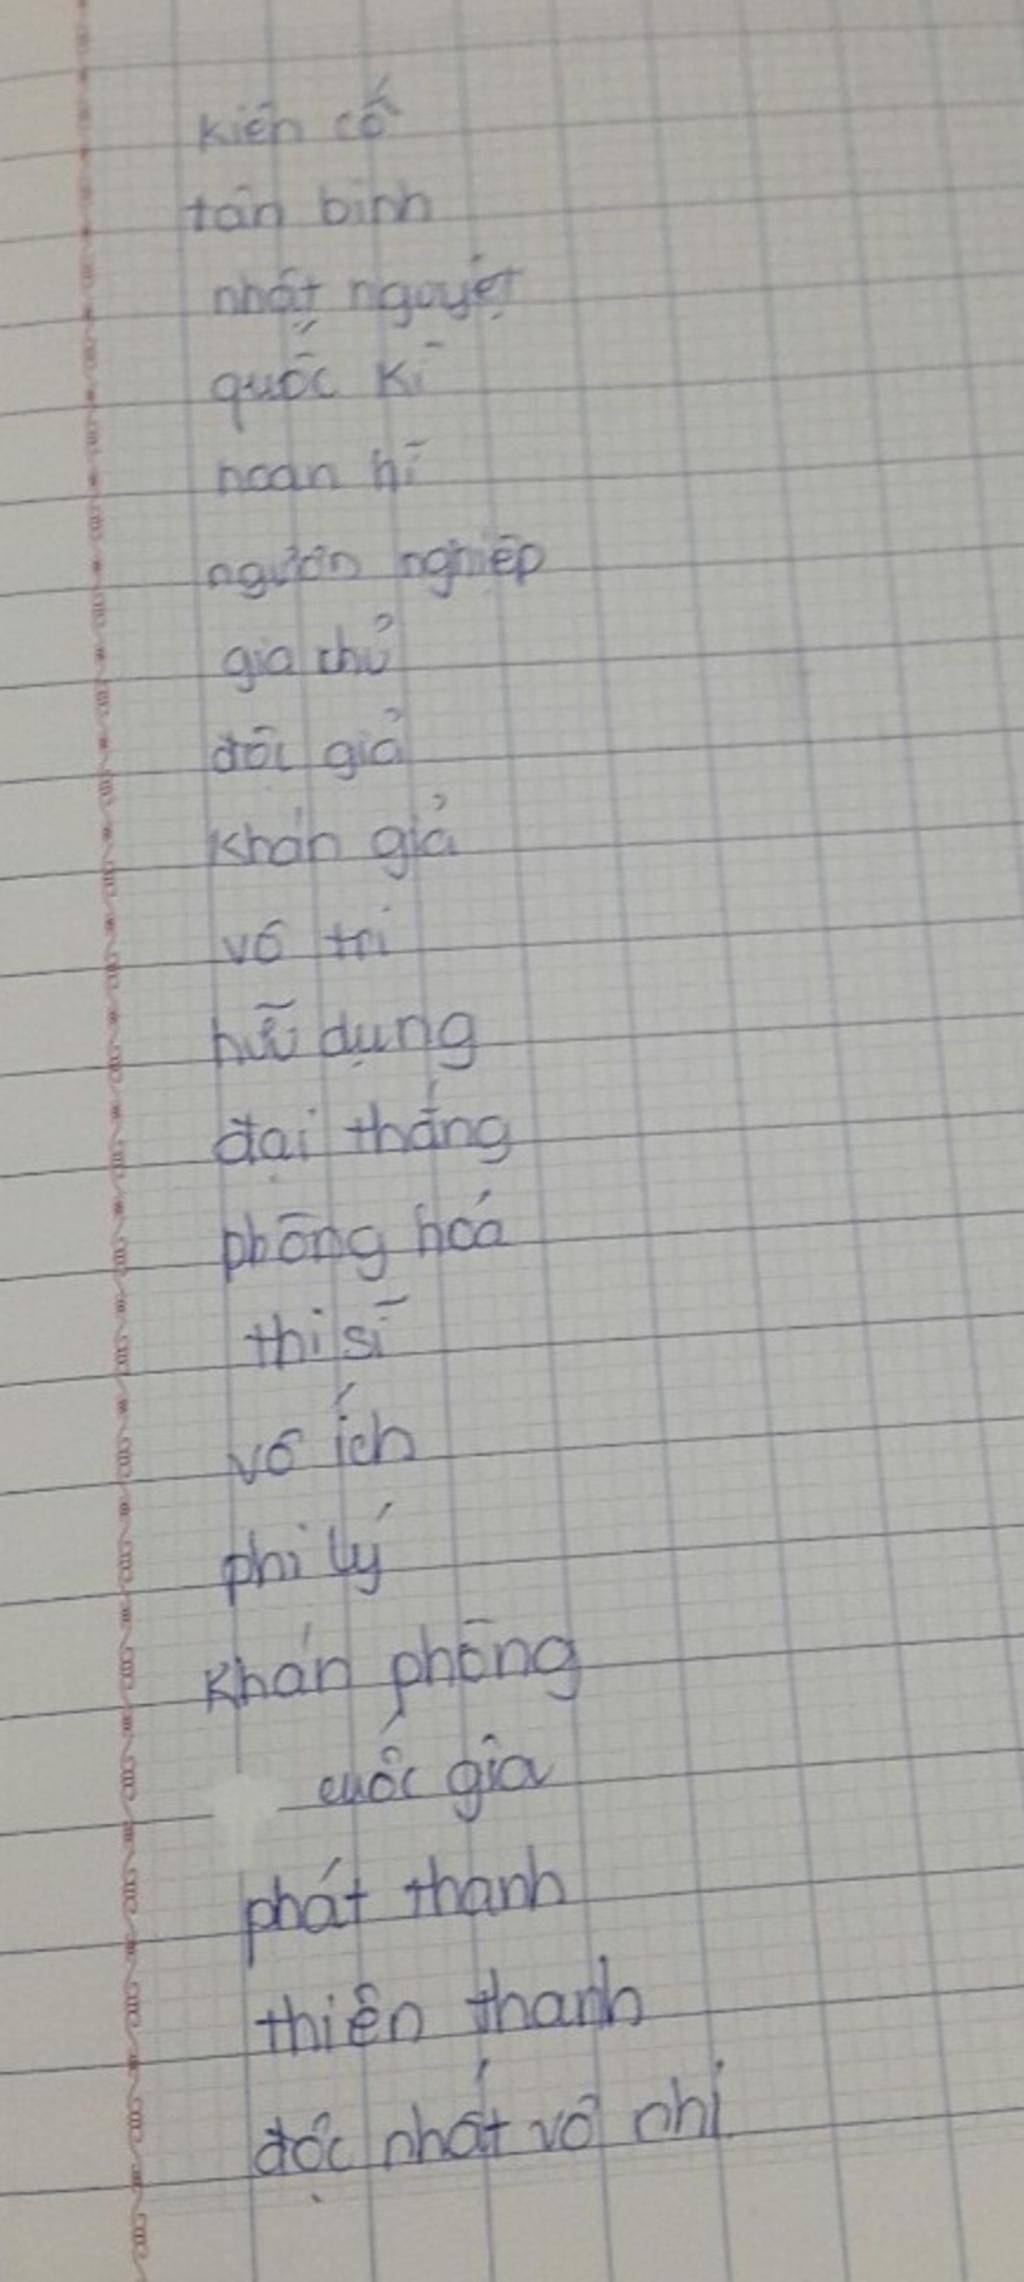 kiên cố
tân binh
nhật nguyệt
quốc kì
hoan hỉ
nghiệp
gia chủ
độc giả
khán giả
vô tri
hữu dụng
đại thắng
phong hoá
thi sĩ
vô ích
phi lý
kháng phong
cuốc gia
phát thanh
thiên thanh
độc nhất vô nhị